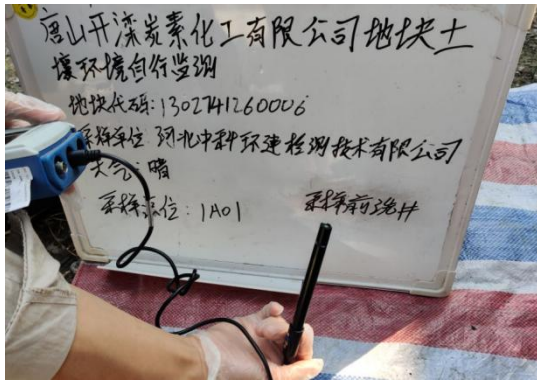 唐山开滦炭素化工有限公司地块土
壤环境自行监测
地块代码:1302741260006
采样单位:河北中科环建检测技术有限公司
天气:晴
采样点位:1A01 采样前洗井